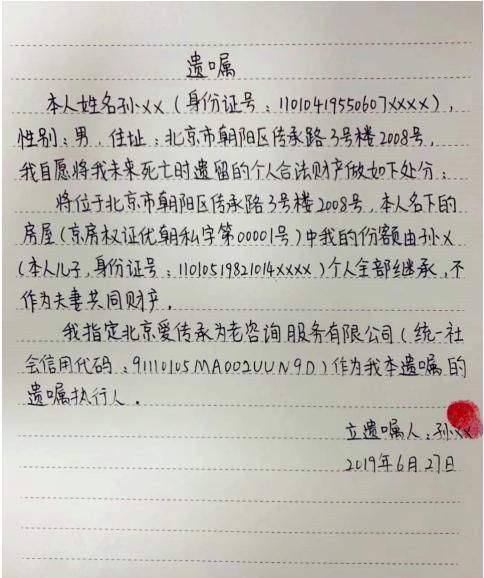 遗嘱
本人姓名孙XX(身份证号:11010419550607XXXX),
性别:男,住址:北京市朝阳区传承路3号楼2008号,
我自愿将我未来死亡时遗留的个人合法财产做如下处分:
将位于北京市朝阳区传承路3号楼2008号,本人名下的
房屋(京房权证优朝私字第00001号)中我的份额由孙X
(本人儿子,身份证号:11010519821014XXXX)个人全部继承,不
作为夫妻共同财产。
我指定北京爱传承为老咨询服务有限公司(统一社
会信用代码:91110105MA002UUN9D)作为我本遗嘱的
遗嘱执行人。
立遗嘱人:孙XX
2019年6月27日